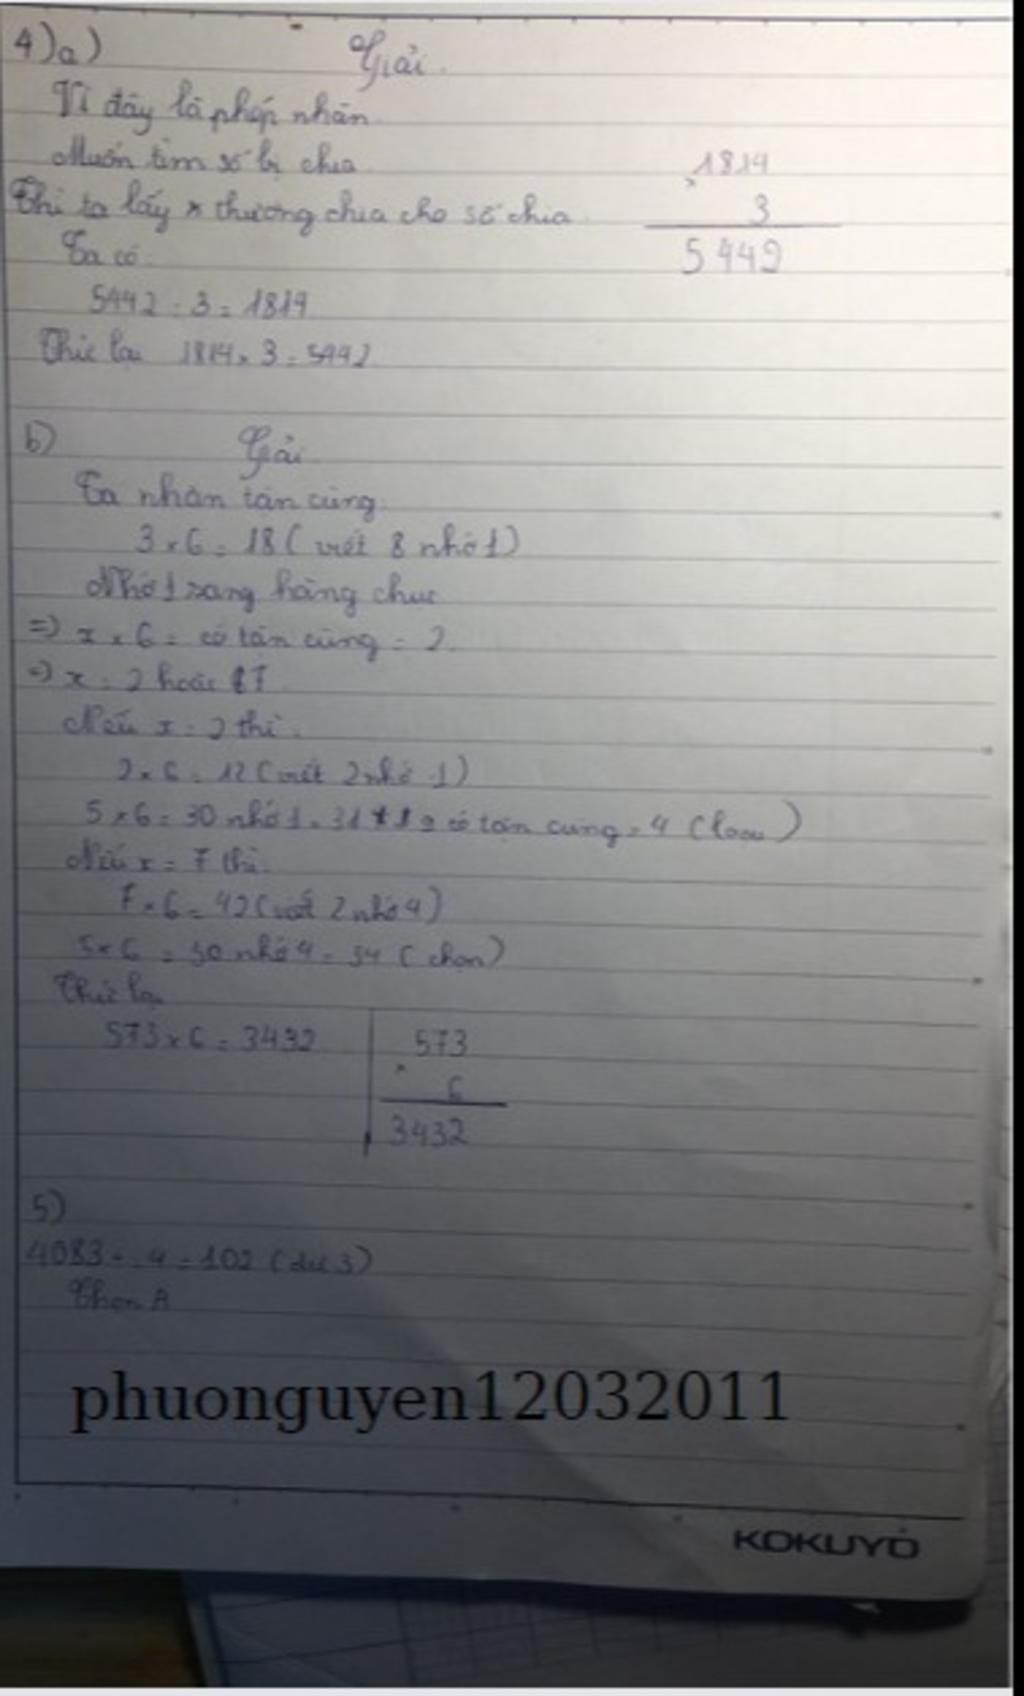 4)a) Giải.
Vì đây là phép nhân.
Muốn tìm số bị chia.
Thì ta lấy thương chia cho số chia.
Ta có
5442 : 3 = 1814
Thử lại 1814 x 3 = 5442
1814
x
3
5442
b) Giải
Ta nhân tận cùng.
3 x 6 = 18 ( viết 8 nhớ 1 )
Nhớ 1 sang hàng chục
=> x x 6 = có tận cùng = 2.
=> x = 2 hoặc 7
Nếu x = 2 thì.
2 x 6 = 12 ( viết 2 nhớ 1 )
5 x 6 = 30 nhớ 1 = 31 có tận cùng = 4 ( loại )
Nếu x = 7 thì.
7 x 6 = 42 ( viết 2 nhớ 4 )
5 x 6 = 30 nhớ 4 = 34 ( chọn )
Thử lại
573 x 6 = 3432
573
x
6
3432
5)
4083 : 4 = 102 ( dư 3 )
Chọn A
phuonguyen12032011
KOKUYO